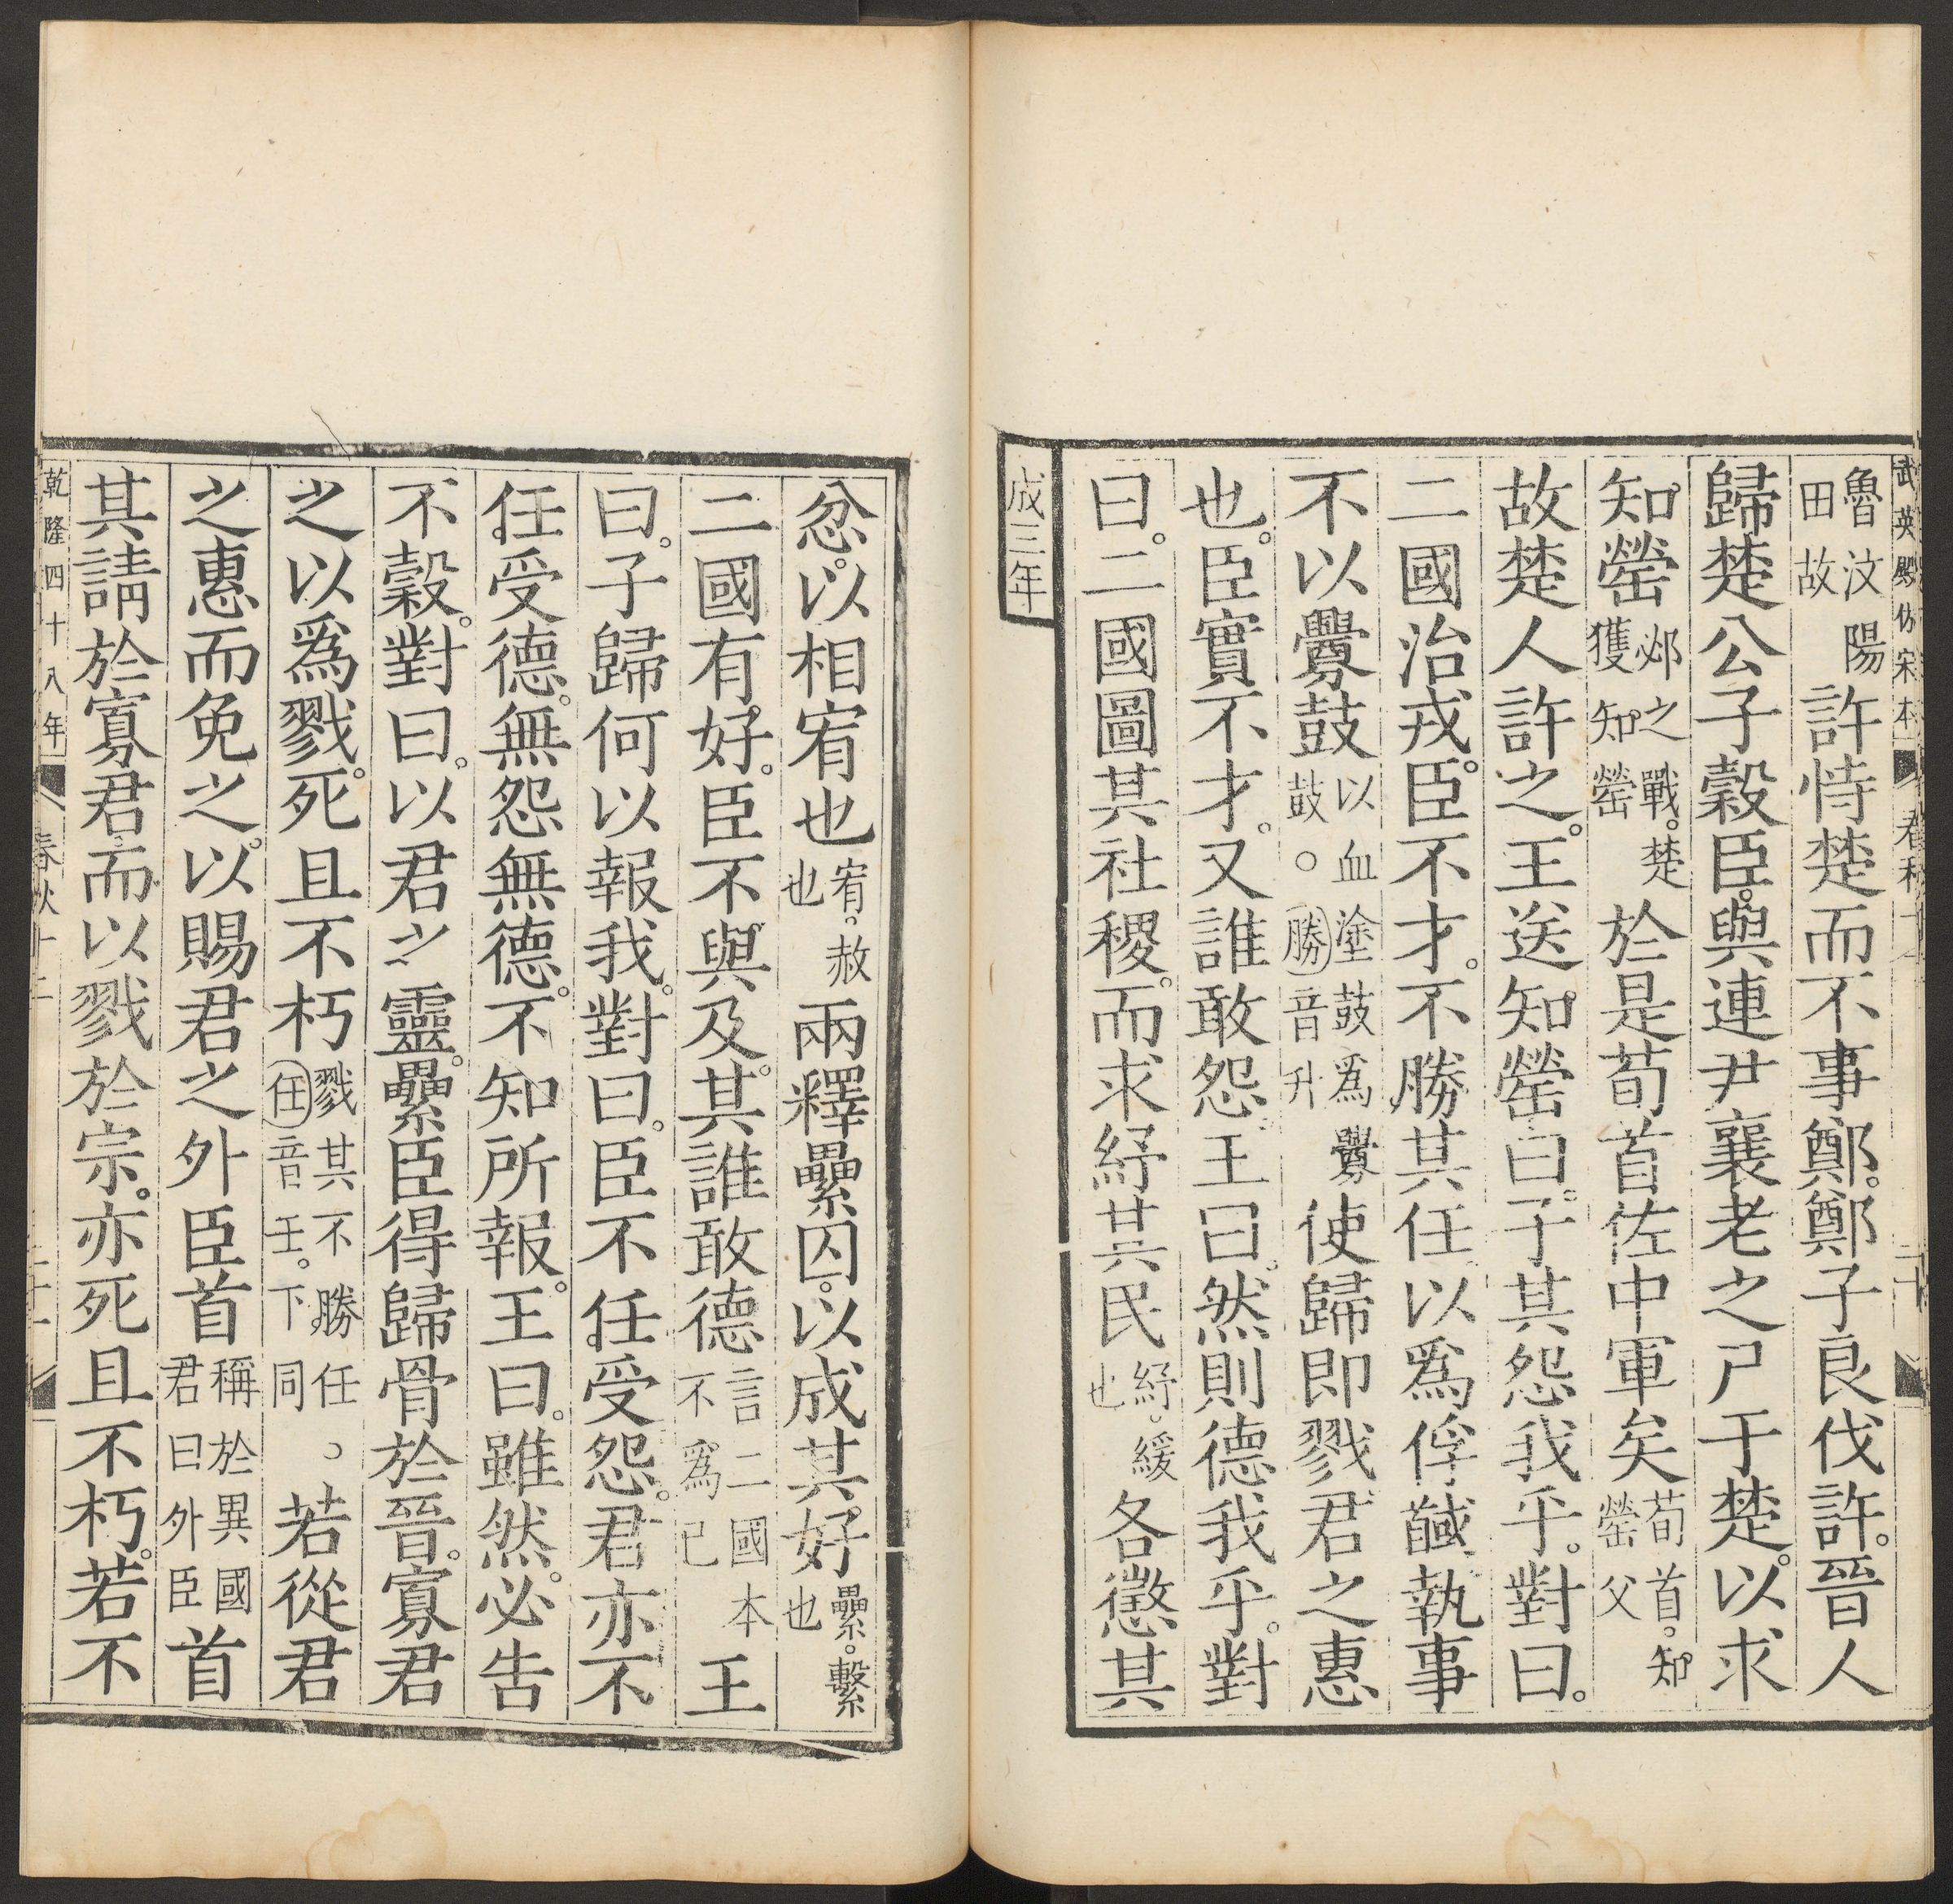 武英殿仿宋本
春秋十二
二十
魯汶陽田故許恃楚而不事鄭。鄭子良伐許。晉人
歸楚公子穀臣。與連尹襄老之尸于楚。以求
知罃邲之戰。楚獲知罃於是荀首佐中軍矣荀首。知罃父
故楚人許之。王送知罃曰。子其怨我乎。對曰。
二國治戎。臣不才。不勝其任以爲俘馘執事
不以釁鼓以血塗鼓爲釁鼓。勝音升使歸即戮君之惠
也。臣實不才。又誰敢怨王曰。然則德我乎。對
曰。二國圖其社稷。而求紓其民紓。緩也各懲其
成三年
忿。以相宥也宥。赦也兩釋纍囚。以成其好纍。繫也
二國有好。臣不與及。其誰敢德言二國本不爲己王
曰。子歸何以報我。對曰。臣不任受怨。君亦不
任受德。無怨無德。不知所報。王曰。雖然。必告
不穀。對曰。以君之靈。纍臣得歸骨於晉。寡君
之以爲戮。死且不朽戮其不勝任。任音壬。下同若從君
之惠而免之。以賜君之外臣首稱於異國君曰外臣首
其請於寡君而以戮於宗。亦死且不朽。若不
乾隆四十八年
春秋十二
二十一